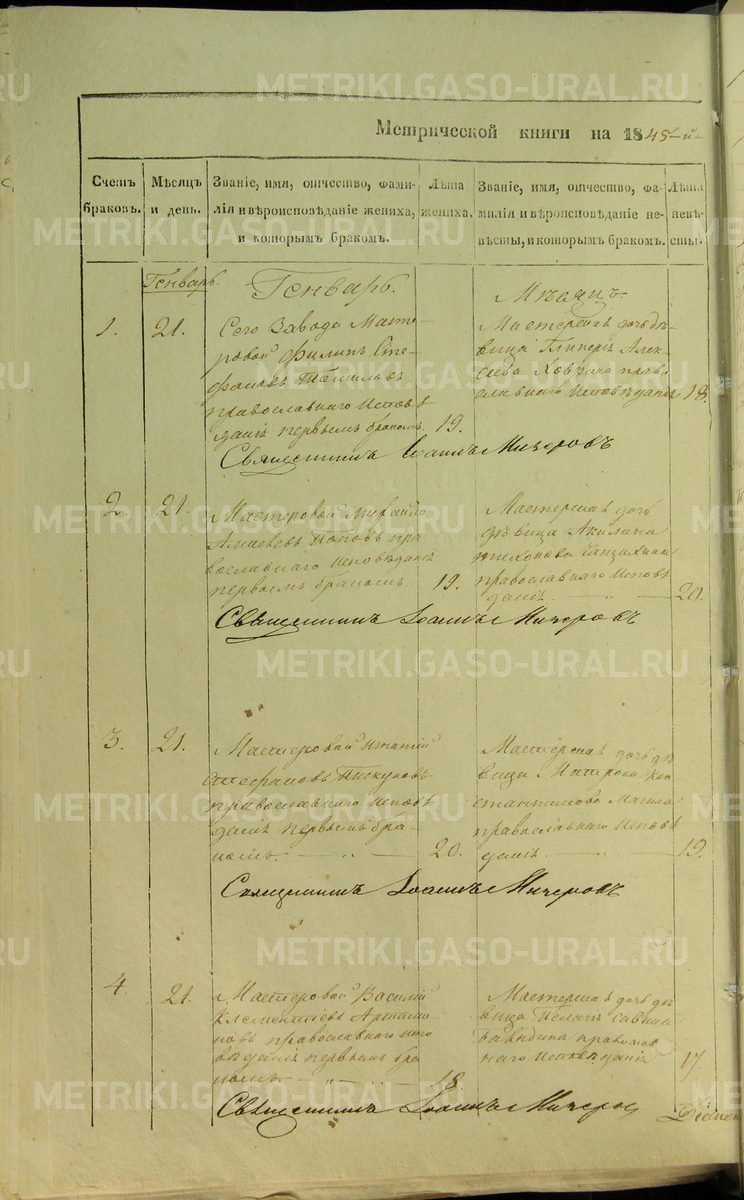 Метрической книги на 1845-й
Счетъ
браковъ.
Мѣсяцъ
и день.
Званіе, имя, отчество, фами-
лія и вѣроисповѣданіе жениха,
и которымъ бракомъ.
Лѣта
жениха.
Званіе, имя, отчество, фа-
милія и вѣроисповѣданіе не-
вѣсты, и которымъ бракомъ.
Лѣта
невѣ-
сты.
Генварь
Генварь.
Мѣсяцъ
1.
21.
Сего Завода Масте-
ровой Филипъ Сте-
фановъ
православнаго Исповѣ
даніѣ первымъ бракомъ.
19.
Мастерская дочь дѣ-
вица Алек-
сѣева правос
лавнаго Исповѣданія
18.
Священникъ Іоаннъ Мичеровъ
2
21.
Мастеровой Михайло
Поповъ пра
вославнаго Исповѣданіѣ
первымъ бракомъ
19.
Мастерская дочь
дѣвица Акилина
Тихонова
православнаго Исповѣ
даніѣ
20.
Священникъ Іоаннъ Мичеровъ
3.
21.
Мастеровой Игнатій
Стефановъ Пискуновъ
православнаго Исповѣ
даніѣ первымъ бра-
комъ.
20.
Мастерская дочь дѣ
вица Матрона Кон
стантинова
православнаго Исповѣ
даніѣ
19.
Священникъ Іоаннъ Мичеровъ
4
21.
Мастеровой Василій
Клементіевъ Артамо
новъ православнаго испо
вѣданіѣ первымъ бра
комъ
18.
Мастерская дочь дѣ
вица Пелагія Савина
Давыдина православ
наго Исповѣданіѣ
17.
Священникъ Іоаннъ Мичеров
METRIKI.GASO-URAL.RU